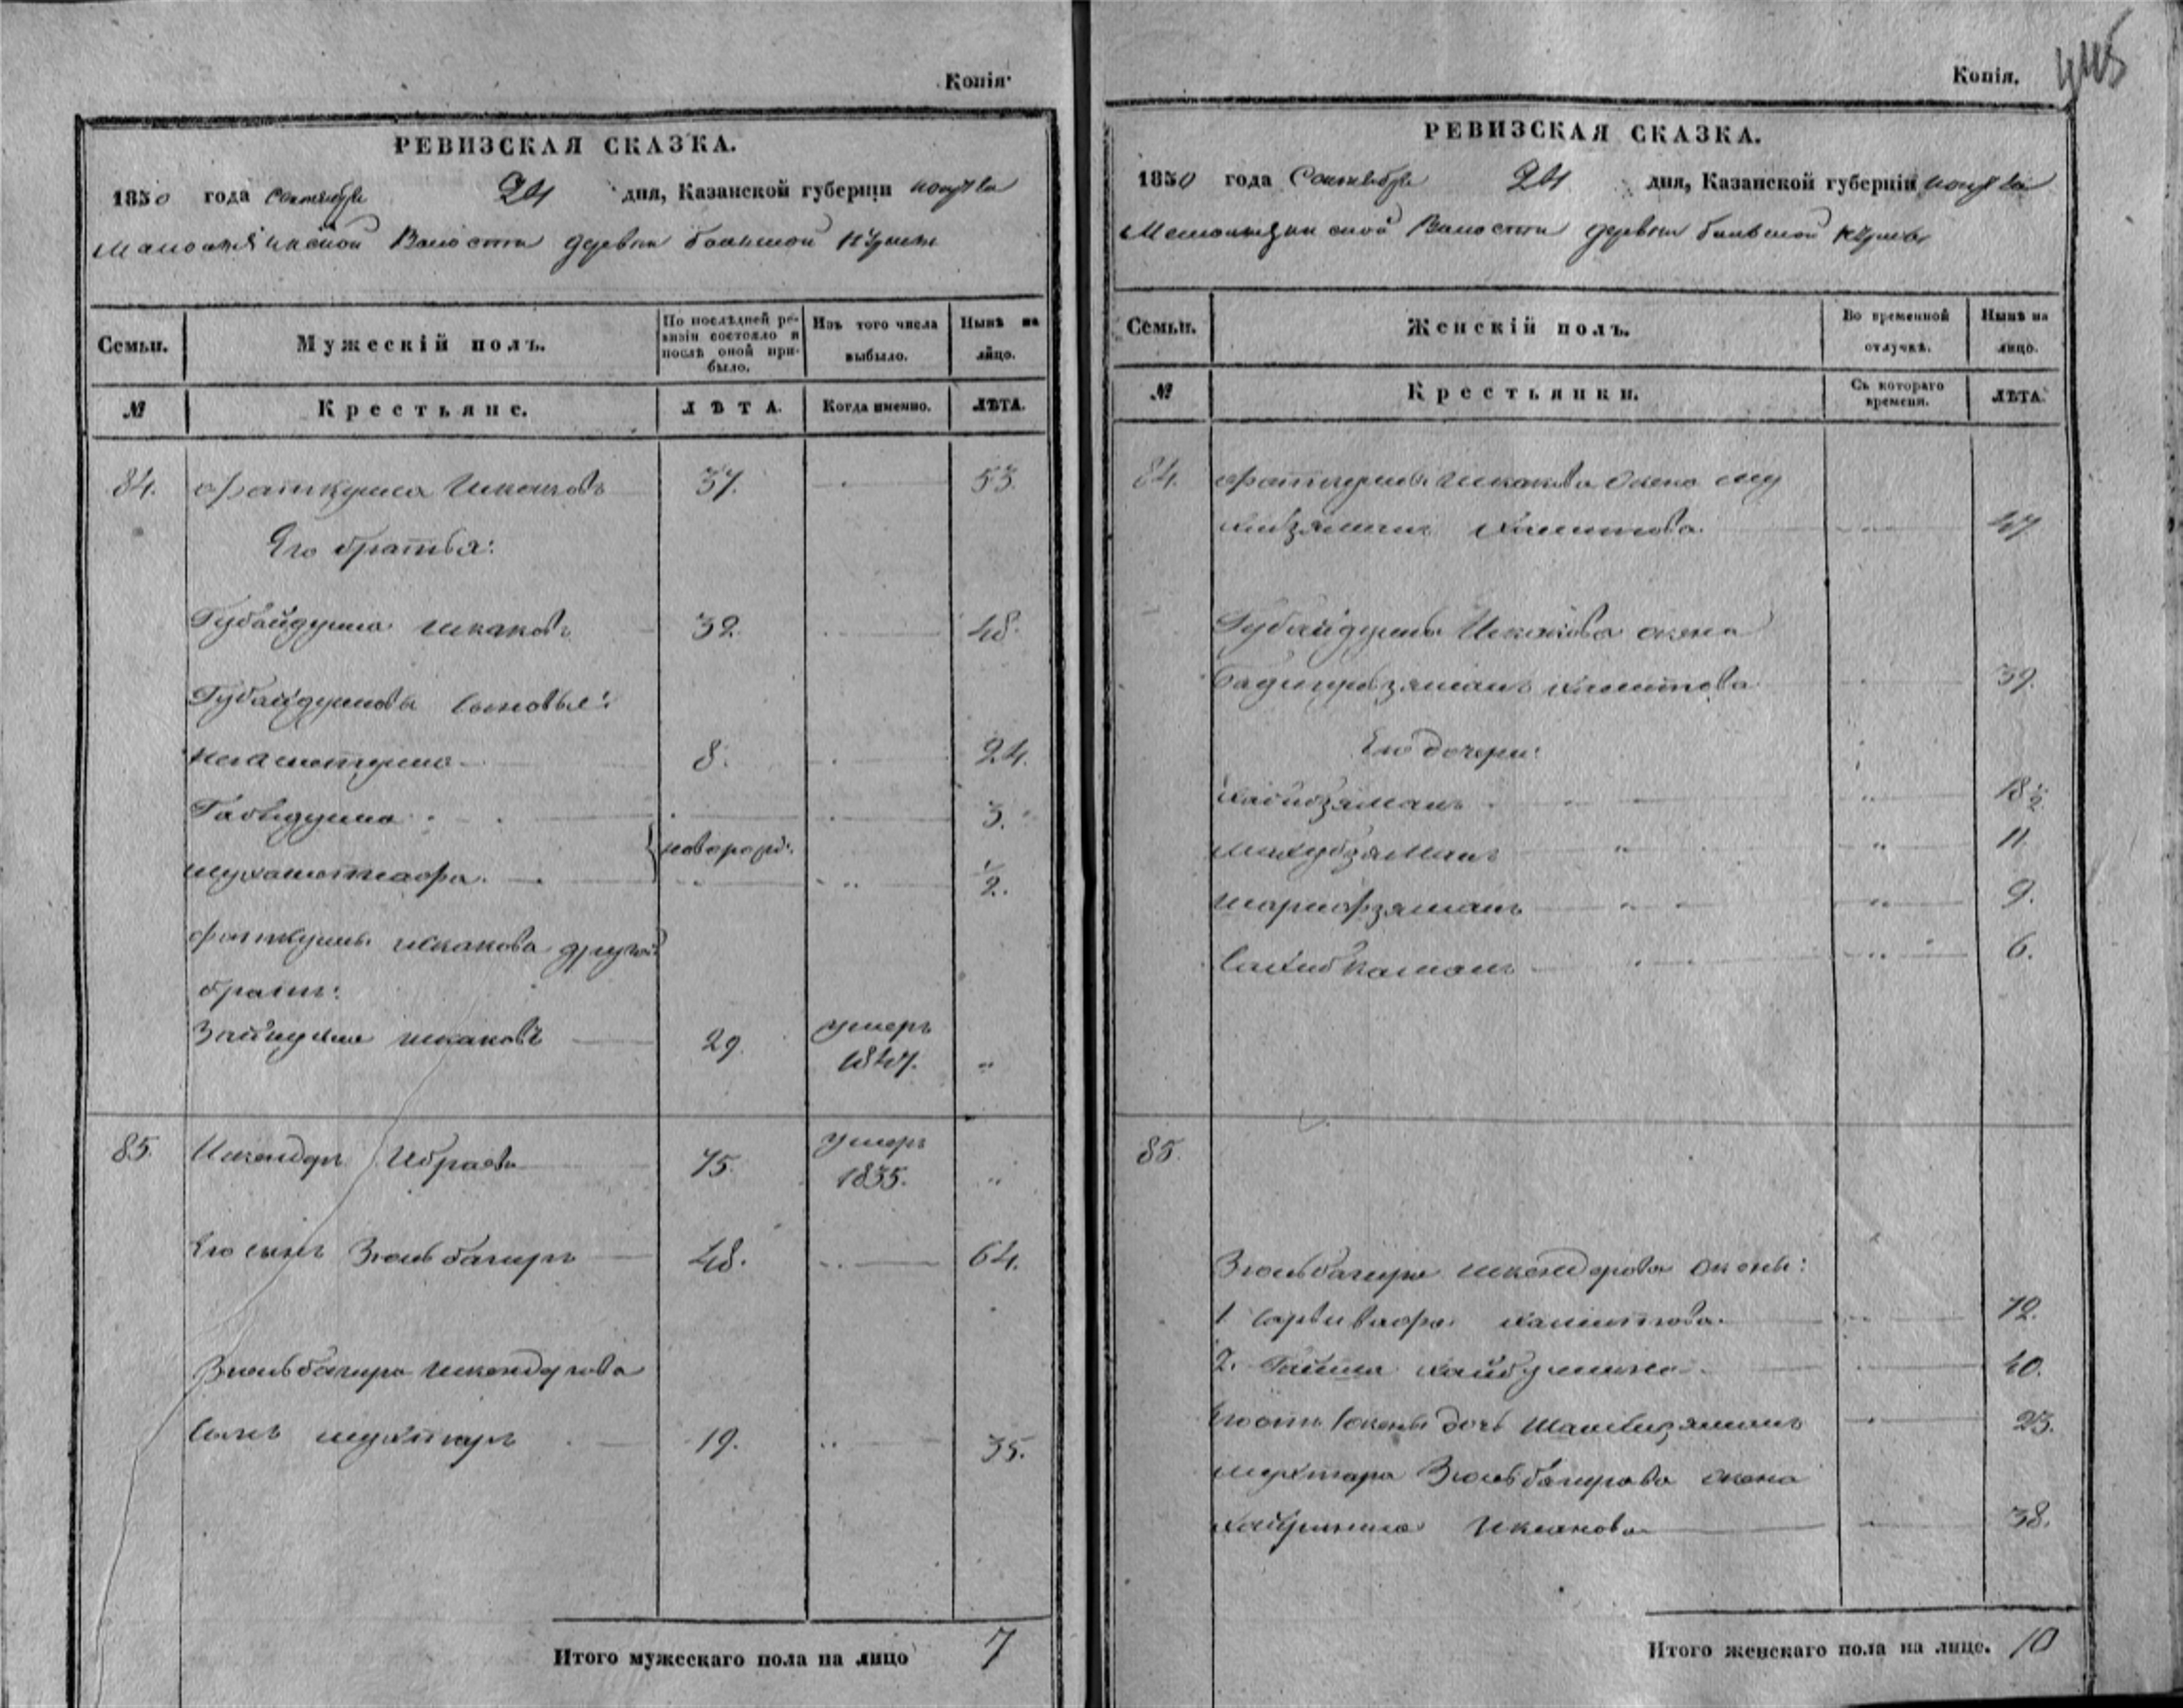 Копія
РЕВИЗСКАЯ СКАЗКА.
1850 года Сентября 24 дня, Казанской губерніи
Волости деревни большой
Семьи. Мужескій полъ. По послѣдней ревизіи состояло и послѣ оной прибыло. Изъ того числа выбыло. Нынѣ на лицо.
№ Крестьяне. ЛѢТА. Когда именно. ЛѢТА.
84. Фаткулла Искаковъ 37. 53.
Его братья:
Губайдулла Искаковъ 32. 48.
Губайдуллы сыновья:
Негаметулла 8. 24.
Габидулла 3.
новорожд.
Мухаметшафа ½.
Фаткуллы Искакова другой
братъ:
Зайнулла Искаковъ 29. умеръ 1847. "
85. Искендеръ Ибраевъ 75. умеръ 1835. "
Его сынъ Зюльбагиръ 48. 64.
Зюльбагира Искендерова
сынъ Мухтаръ 19. 35.
Итого мужескаго пола на лицо 7
Копія.
445
РЕВИЗСКАЯ СКАЗКА.
1850 года Сентября 24 дня, Казанской губерніи
Волости деревни большой
Семьи. Женскій полъ. Во временной отлучкѣ. Нынѣ на лицо.
№ Крестьянки. Съ котораго времени. ЛѢТА.
84. Фаткуллы Искакова жена
Хамитова 47
Губайдуллы Искакова жена
Бадигулзяманъ Хамитова 39.
Его дочери:
Хабибзяманъ 18½
Махубзяманъ 11
Шарифзяманъ 9.
Сахибзяманъ 6.
85.
Зюльбагира Искендерова жены:
1 Хамитова 72.
2. Гайша 40.
Его отъ 1 жены дочь 23.
Мухтара Зюльбагирова жена
38.
Итого женскаго пола на лице. 10